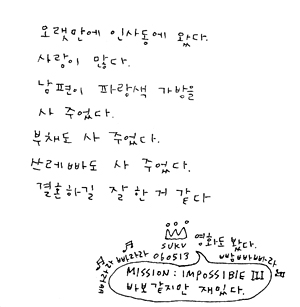 오랫만에 인사동에 왔다.
사람이 많다.
남편이 파랑색 가방을
사 주었다.
부채도 사 주었다.
쓰레빠도 사 주었다.
결혼하길 잘 한 거 같다
SUKU 영화도 봤다.
빠바라 빠라라 060513 빰빠빠바라
MISSION : IMPOSSIBLE III
바보같지만 재밌다.